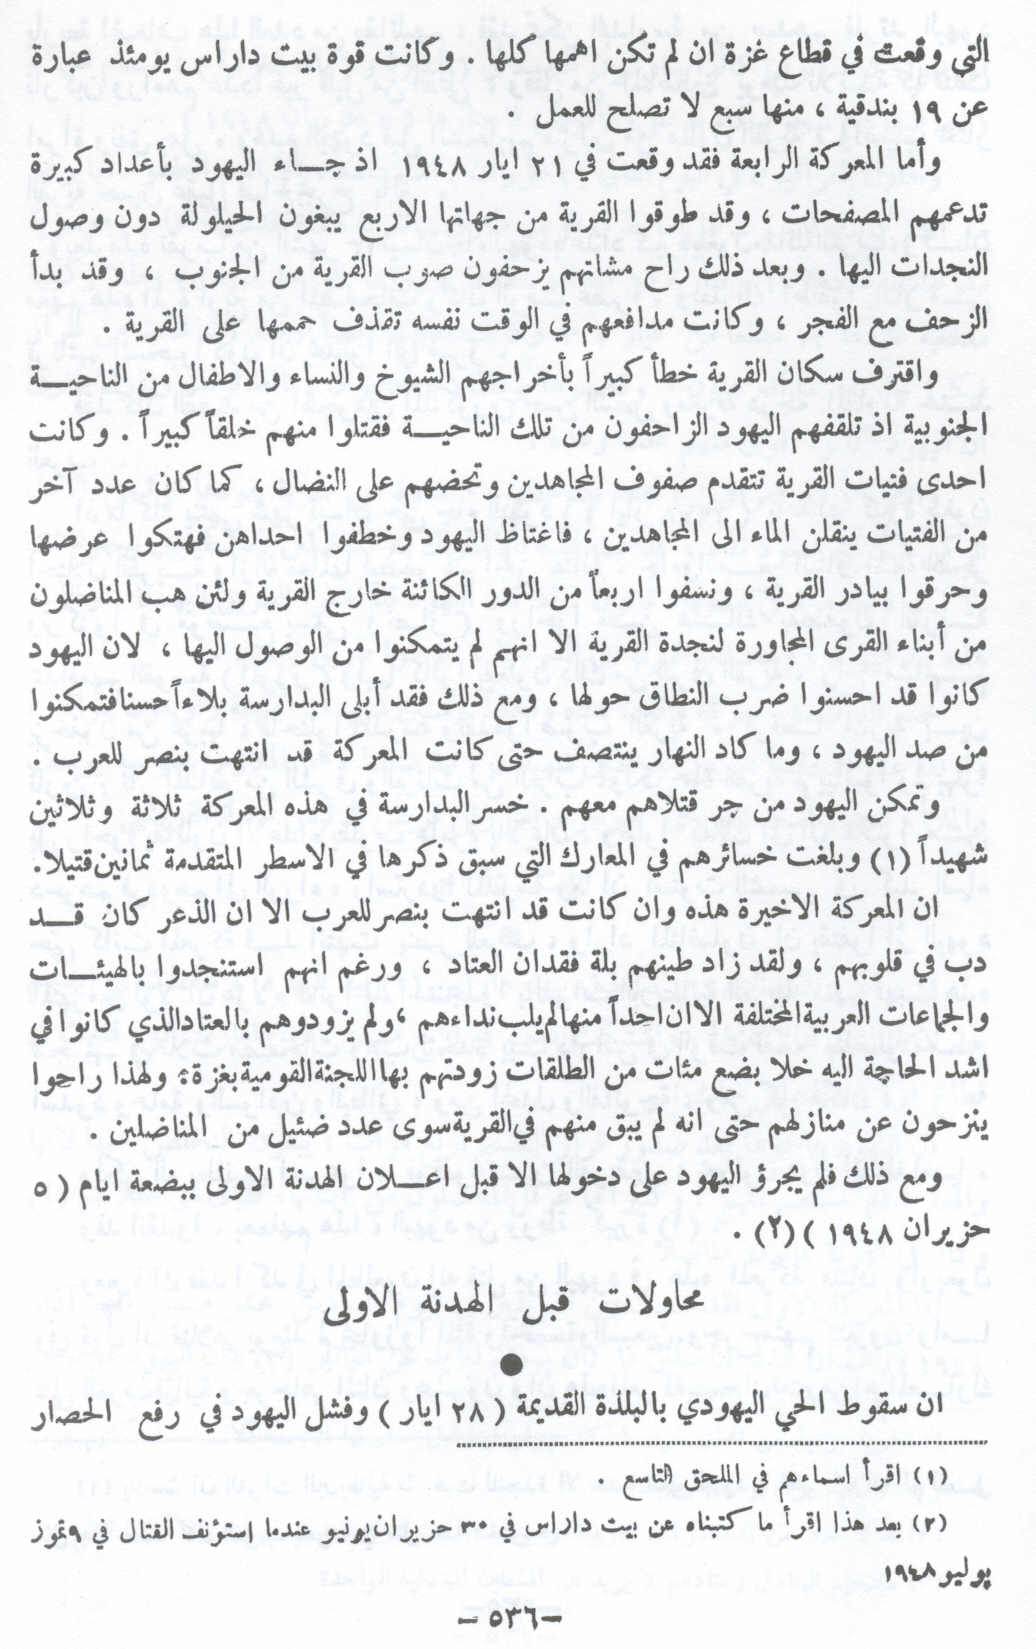 التي وقعت في قطاع غزة ان لم تكن اهمها كلها . وكانت قوة بيت داراس يومئذ عبارة
عن ١٩ بندقية ، منها سبع لا تصلح للعمل .
وأما المعركة الرابعة فقد وقعت في ٢١ ايار ١٩٤٨ اذ جـاء اليهود بأعداد كبيرة
تدعمهم المصفحات ، وقد طوقوا القرية من جهاتها الاربع يبغون الحيلولة دون وصول
النجدات اليها . وبعد ذلك راح مشاتهم يزحفون صوب القرية من الجنوب ، وقد بدأ
الزحف مع الفجر ، وكانت مدافعهم في الوقت نفسه تقذف حممها على القرية .
واقترف سكان القرية خطأ كبيراً بأخراجهم الشيوخ والنساء والاطفال من الناحيـة
الجنوبية اذ تلقفهم اليهود الزاحفون من تلك الناحيـة فقتلوا منهم خلقاً كبيراً . وكانت
احدى فتيات القرية تتقدم صفوف المجاهدين وتحضهم على النضال ، كما كان عدد آخر
من الفتيات ينقلن الماء الى المجاهدين ، فاغتاظ اليهود وخطفوا احداهن فهتكوا عرضها
وحرقوا بيادر القرية ، ونسفوا اربعاً من الدور الكائنة خارج القرية ولئن هب المناضلون
من أبناء القرى المجاورة لنجدة القرية الا انهم لم يتمكنوا من الوصول اليها ، لان اليهود
كانوا قد احسنوا ضرب النطاق حولها ، ومع ذلك فقد أبلى البدارسة بلاءاً حسنا فتمكنوا
من صد اليهود ، وما كاد النهار ينتصف حتى كانت المعركة قد انتهت بنصر للعرب .
وتمكن اليهود من جر قتلاهم معهم . خسر البدارسة في هذه المعركة ثلاثة وثلاثين
شهيداً (١) وبلغت خسائرهم في المعارك التي سبق ذكرها في الاسطر المتقدمة ثمانين قتيلا.
ان المعركة الاخيرة هذه وان كانت قد انتهت بنصر للعرب الا ان الذعر كان قـد
دب في قلوبهم ، ولقد زاد طينهم بلة فقدان العتاد ، ورغم انهم استنجدوا بالهيئـات
والجماعات العربية المختلفة الا ان احداً منها لم يلب نداءهم ، ولم يزودوهم بالعتاد الذي كانوا في
اشد الحاجة اليه خلا بضع مئات من الطلقات زودتهم بها اللجنة القومية بغزة، ولهذا راحوا
ينزحون عن منازلهم حتى انه لم يبق منهم في القرية سوى عدد ضئيل من المناضلين .
ومع ذلك فلم يجرؤ اليهود على دخولها الا قبل اعـلان الهدنة الاولى ببضعة ايام ( ٥
حزيران ١٩٤٨ ) (٢) .
محاولات قبل الهدنة الاولى
ان سقوط الحي اليهودي بالبلدة القديمة ( ٢٨ ايار ) وفشل اليهود في رفع الحصار
(١) اقرأ اسماءهم في الملحق التاسع .
(٢) بعد هذا اقرأ ما كتبناه عن بيت داراس في ٣٠ حزيران يونيو عندما استؤنف القتال في ٩ تموز
يوليو ١٩٤٨
–٥٣٦–